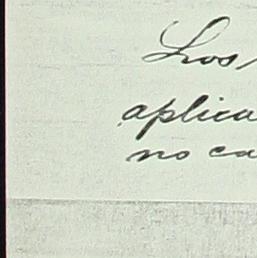 Los
aplica
no ca